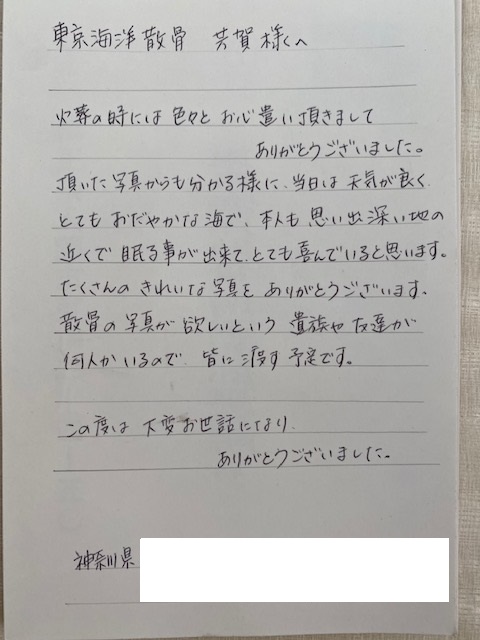 東京海洋散骨 芳賀様へ
火葬の時には色々とお心遣い頂きまして
ありがとうございました。
頂いた写真からも分かる様に、当日は天気が良く
とてもおだやかな海で、本人も思い出深い地の
近くで眠る事が出来て、とても喜んでいると思います。
たくさんのきれいな写真をありがとうございます。
散骨の写真が欲しいという遺族や友達が
何人かいるので、皆に渡す予定です。
この度は大変お世話になり、
ありがとうございました。
神奈川県